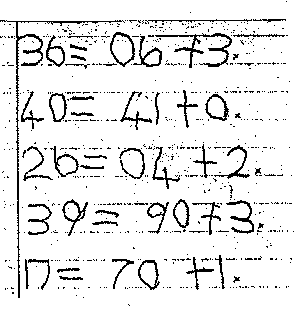 36= 06+3.
40= 41+0.
26=04+2.
39= 90+3.
17= 70+1.